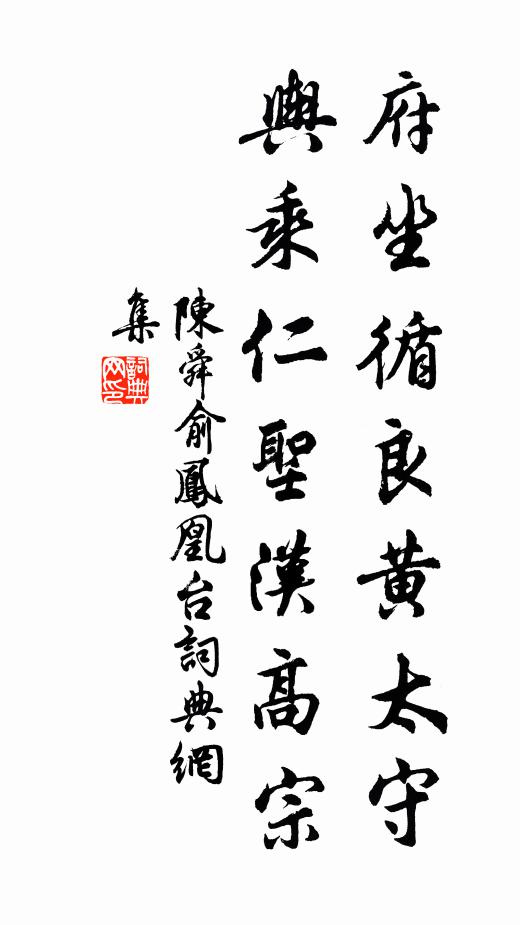 府坐循良黄太守
輿乘仁聖漢高宗
陳舜俞鳳凰台詞典網
集
詞典
网印